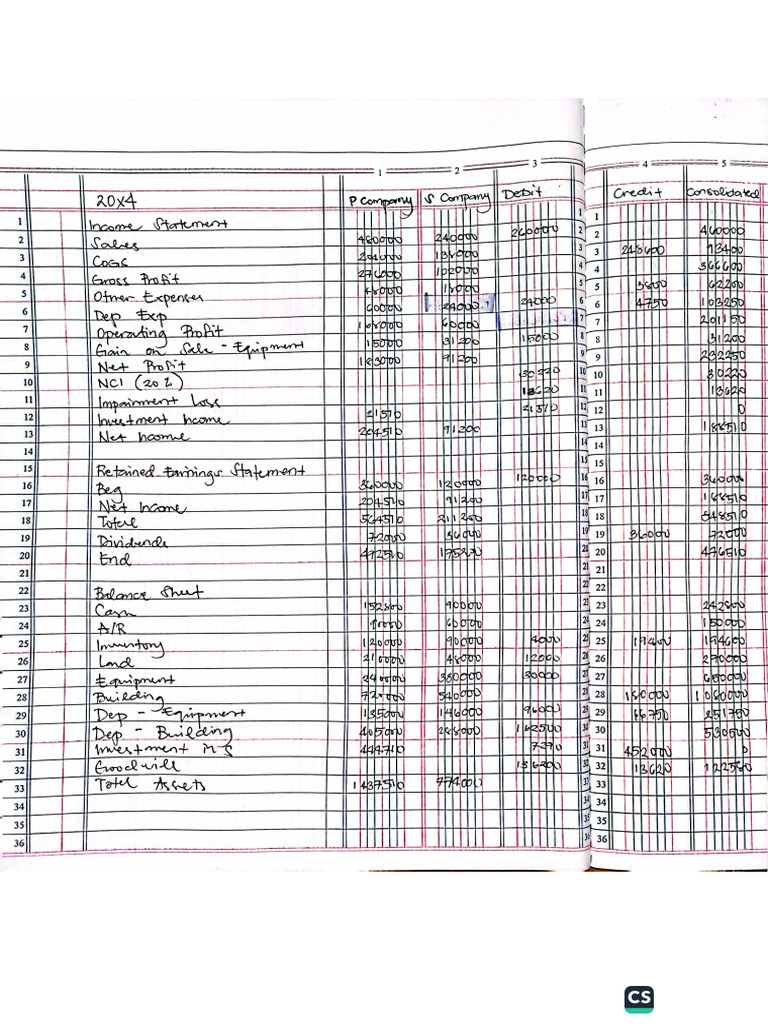 1 2 3 4 5
20x4 P Company S Company Debit Credit Consolidated
1 Income Statement 1 1
2 Sales 480000 240000 260000 2 2 460000
3 COGS 204000 138000 3 3 248600 93400
4 Gross Profit 276000 102000 4 4 366600
5 Other Expenses 48000 18000 5 5 3800 62200
6 Dep Exp 60000 24000 24000 6 6 4750 103250
7 Operating Profit 168000 60000 7 7 201150
8 Gain on Sale - Equipment 15000 31200 15000 8 8 31200
9 Net Profit 183000 91200 9 9 232250
10 NCI (20%) 30220 10 10 30220
11 Impairment Loss 13620 11 11 13620
12 Investment Income 21510 21510 12 12 0
13 Net Income 204510 91200 13 13 188510
14 14 14
15 Retained Earnings Statement 15 15
16 Beg 360000 120000 120000 16 16 360000
17 Net Income 204510 91200 17 17 188510
18 Total 564510 211200 18 18 548510
19 Dividends 72000 36000 19 19 36000 72000
20 End 492510 175200 20 20 476510
21 21
22 Balance Sheet 22
23 Cash 152800 90000 23 242800
24 A/R 90000 60000 24 150000
25 Inventory 120000 90000 9000 25 19400 194600
26 Land 210000 48000 12000 26 270000
27 Equipment 240000 380000 30000 27 650000
28 Building 720000 540000 28 180000 1080000
29 Dep - Equipment 135000 146000 9600 29 66750 251750
30 Dep - Building 405000 288000 162500 30 530500
31 Investment in S 444710 7290 31 452000 0
32 Goodwill 136200 32 13620 122580
33 Total Assets 1437510 774000 33
34 34
35 35
36 36
CS